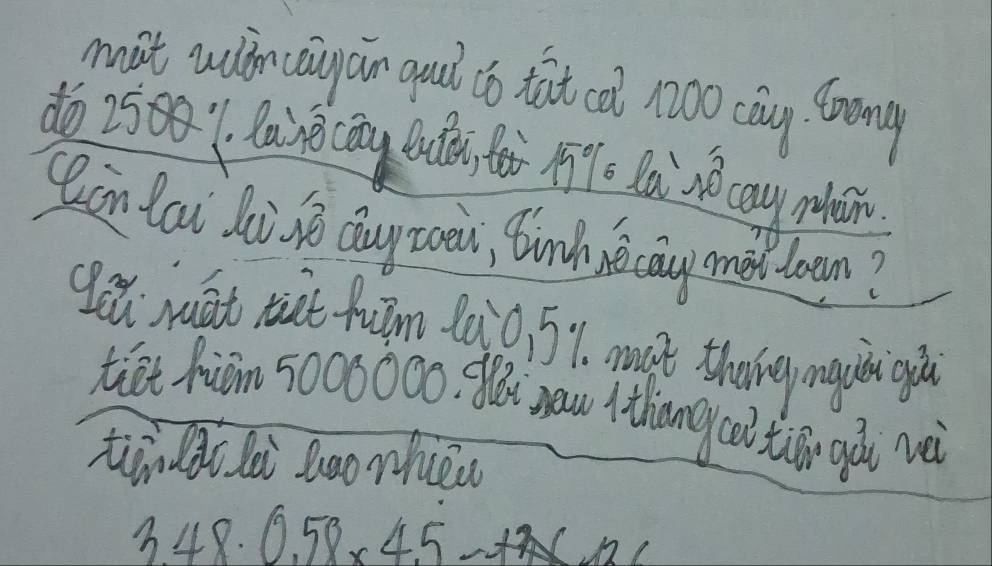 một vườn cây ăn quả có tất cả 1200 cây. Trong
đó 25% là số cây bưởi, 15% là số cây nhãn.
Còn lại là số cây xoài, Tính số cây mỗi loại?
Lãi suất tiết kiệm là 0,5% một tháng người gửi
tiết kiệm 5000000. Hỏi sau 1 tháng cả tiền gửi và
tiền lãi là bao nhiêu
3,48 . 0,58 x 4,5